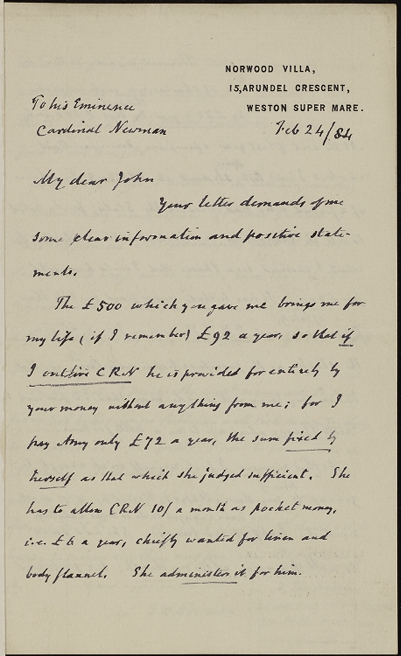 NORWOOD VILLA,
15, ARUNDEL CRESCENT,
WESTON SUPER MARE.
Feb 24/84
To his Eminence
Cardinal Newman
My dear John
Your letter demands of me
some clear information and positive state-
ments.
The £500 which you gave me brings me for
my life (if I remember) £92 a year, so that if
I outlive CRN he is provided for entirely by
your money without anything from me; for I
pay Amy only £72 a year, the sum fixed by
herself as that which she judged sufficient. She
has to allow CRN 10/ a month as pocket money,
i.e. £6 a year, chiefly wanted for linen and
body flannel. She administers it for him.